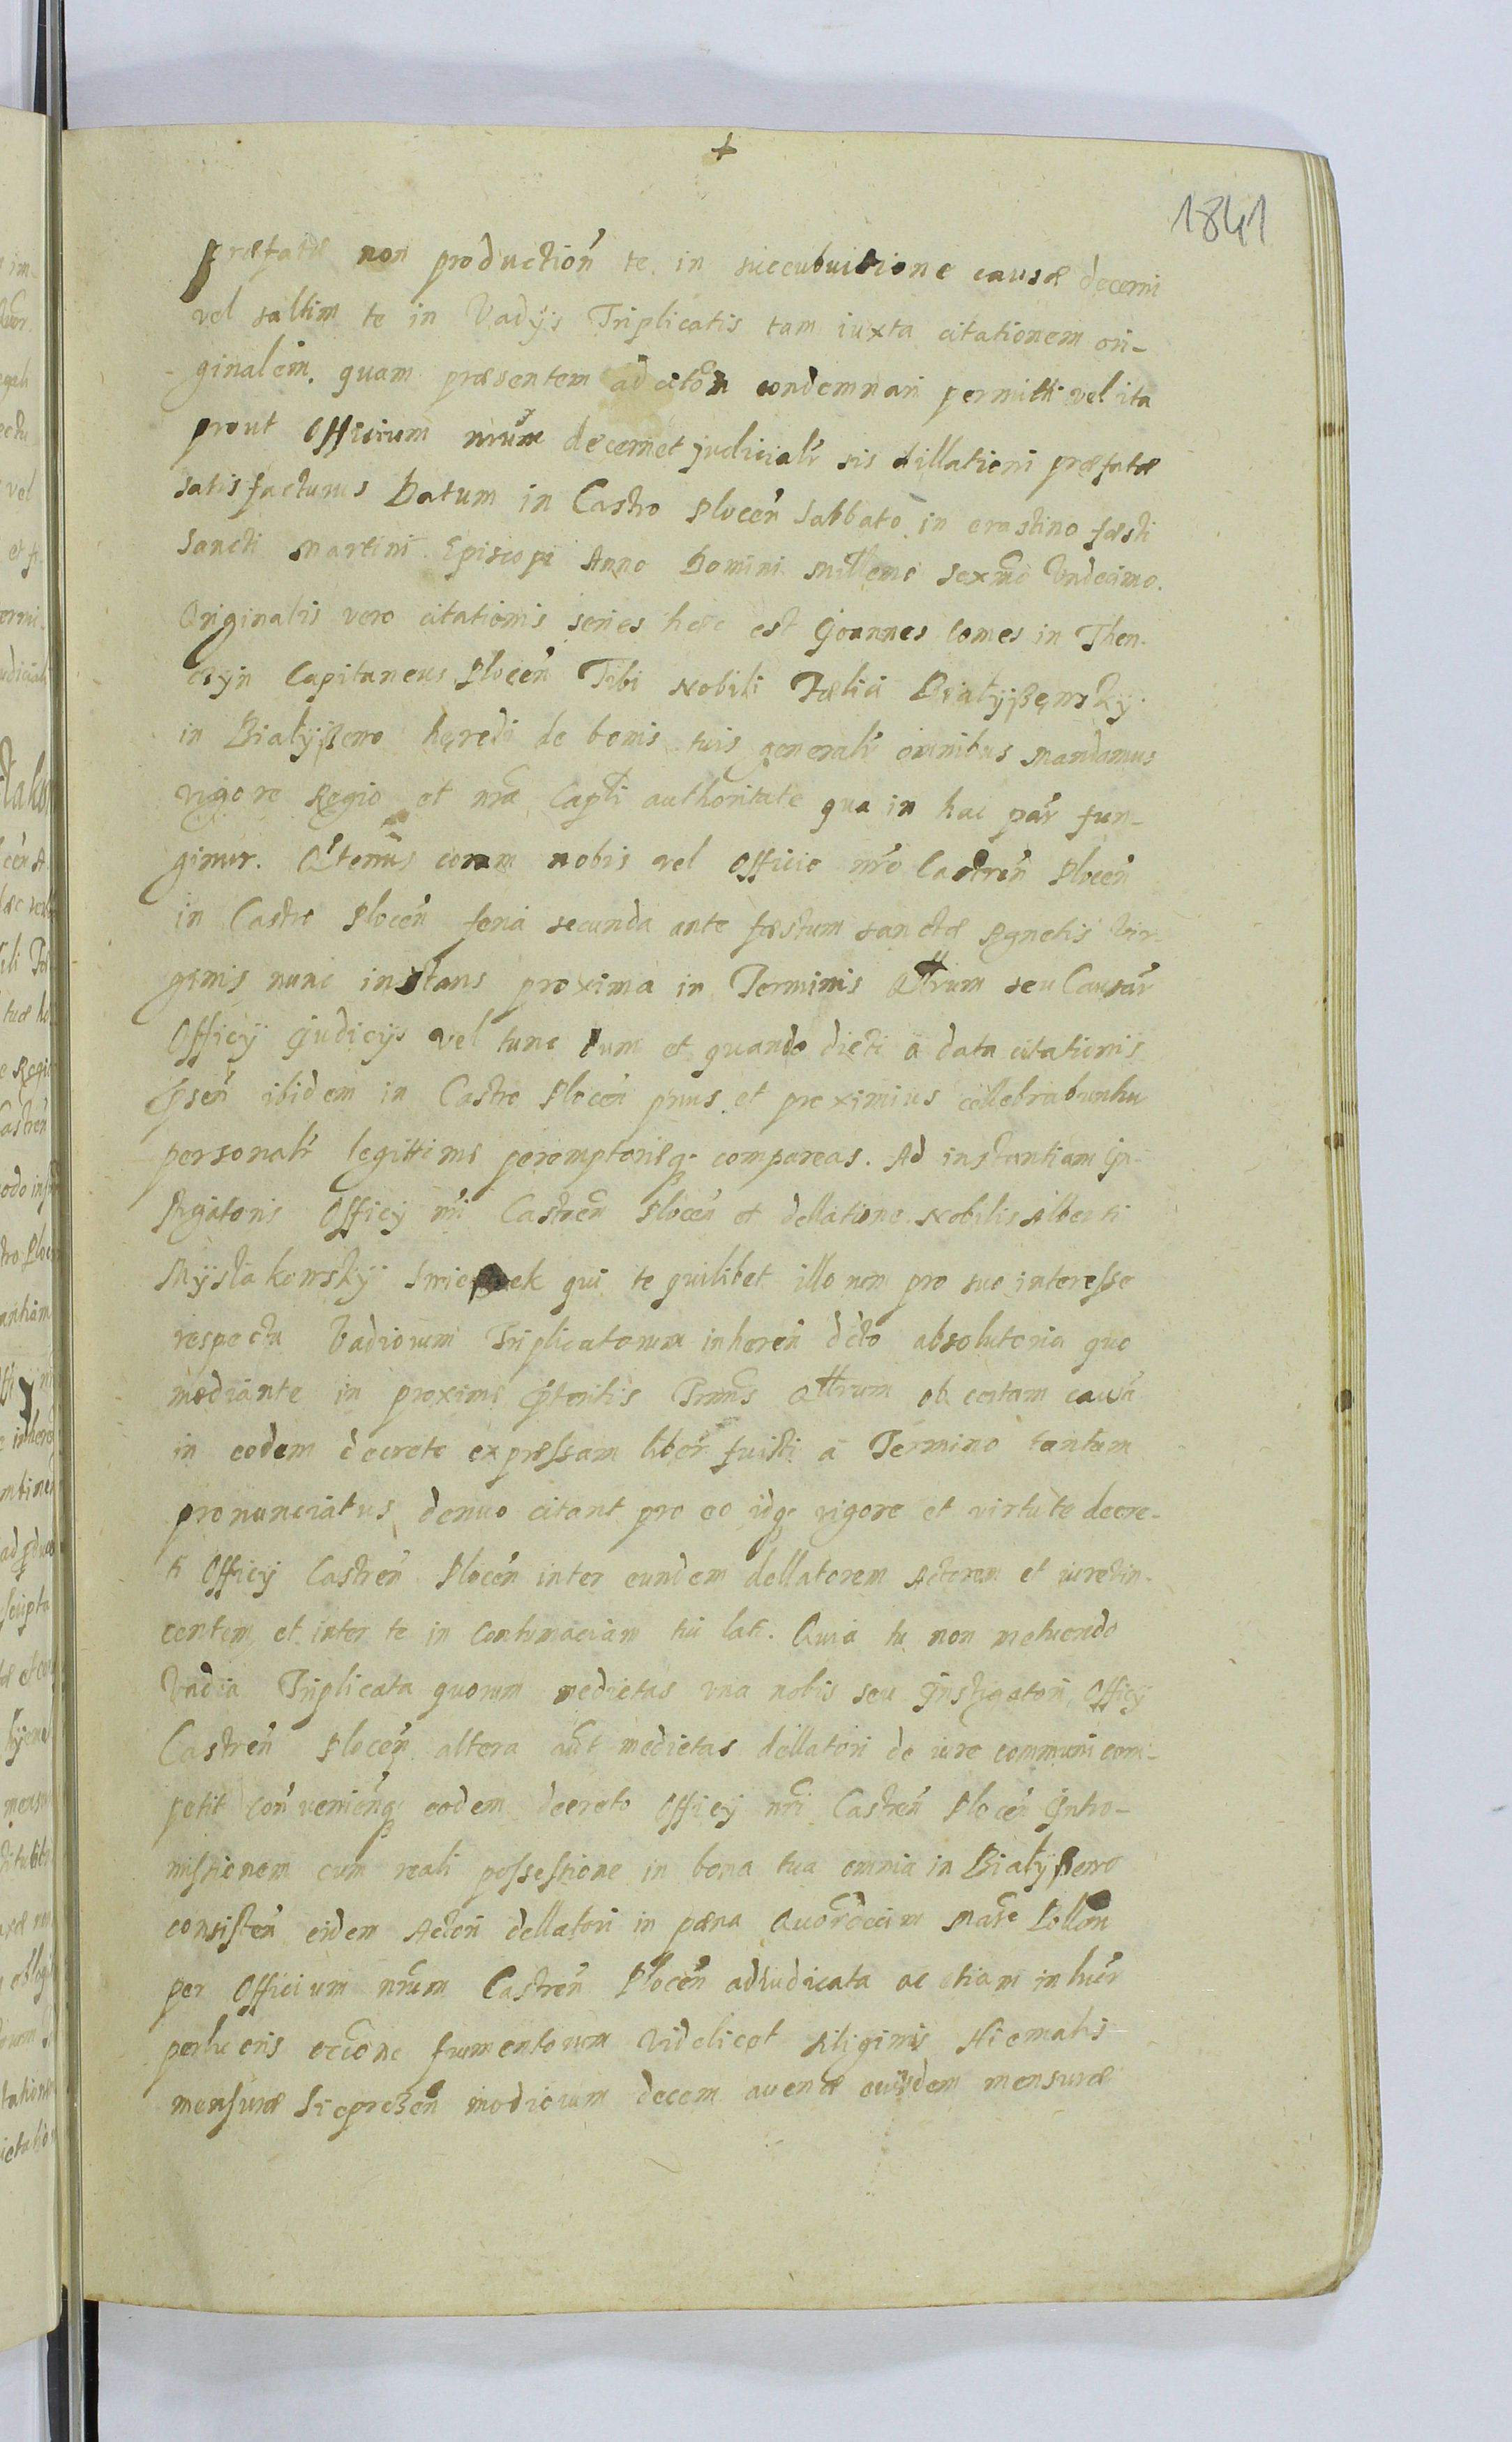 +
1841
præfatæ non production̄ te in succubuitione causæ decerni
vel saltim te in Vadÿs Triplicatis tam iuxta citationem ori-
ginalem quam præsentem ad citōn condemnari permitti vel ita
prout Officium nr̄um decernet judicialr̄ sis dillationi præfatæ
satisfacturus Datum in Castro Plocen̄ Sabbato in crastino fæsti
Sancti Martini Episcopi Anno Domini Millemo sexmo Vndecimo.
Originalis vero citationis series hæc est Joannes Comes in Then-
czyn Capitaneus Plocen̄ Tibi Nobili Fælici Białÿßęwskÿ
in Białÿßewo hęredi de bonis tuis generalr̄ omnibus Mandamus
rigore Regio et nr̄a Capti authoritate qua in hac par̄ fun-
gimur. Q̄tenus coram nobis vel Officio nr̄o Castren̄ Plocen̄
in Castro Plocen̄ feria secunda ante fæstum sanctæ Agnetis Vir-
ginis nunc instans proxima in Terminis Q̄ttrum seu Causar̄
Officÿ Judicÿs vel tunc dum et quando dicti a data citationis
p̄sen̄ ibidem in Castro Plocen̄ prius et proximius cellebrabuntur
personalr̄ legittime peremptorieq. compareas. Ad instantiam In-
stigatoris Officÿ nr̄i Castren̄ Plocen̄ et dellatione Nobilis Alberti
Mÿstakowskÿ qui te quilibet illo rum pro suo interesse
respectu Vadiorum Triplicatorum inheren̄ dcto absolutoria quo
mediante in proxime p̄teritis Trmis Q̄ttrum ob certam causā
in eodem decreto expræssam liber fuisti a Termino tantum
pronunciatus denuo citant pro eo idq. vigore et virtute decre-
ti Officÿ Castren̄ Plocen̄ inter eundem dellatorem Actorem et iurevin-
centem et inter te in contumaciam tui lati. Quia tu non metuendo
Vadia Triplicata quorum medietas vna nobis seu Instigatori Officÿ
Castren̄ Plocen̄ altera aut̄ medietas dellatori de iure communi com-
petit convenien̄q. eodem decreto Officÿ nr̄i Castren̄ Plocen̄ Intro-
missionem cum reali possessione in bona tua omnia in Białÿßewo
consisten̄ eidem Actori dellatori in pæna Quordecim Marc Pollon̄
per Officium nr̄um Castren̄ Plocen̄ adiudicata ac etiam in
frumentorum videlicet siliginis Hiemalis
mensuræ modiorum decem avenæ eiusdem mensuræ